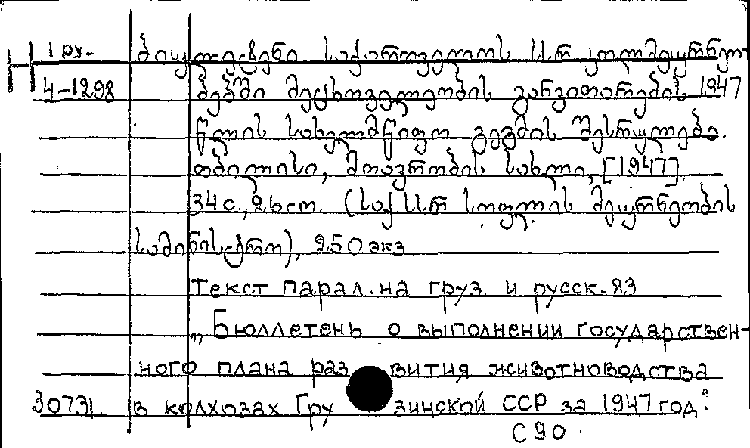 Груз.
ბიულეტენი საქართველოს სსრ კოლმეურნეო-
Н 4-1298 ბებში მეცხოველეობის განვითარების 1947
წლის სახელმწიფო გეგმის შესრულება.
თბილისი, მთავრობის სახლი, [1947].
34 с., 26 см. (საქ სსრ სოფლის მეურნეობის
სამინისტრო), 250 экз
Текст парал. на груз. и русск. яз
„Бюллетень о выполнении государствен-
ного плана развития животноводства
30731 в колхозах Грузинской ССР за 1947 год."
С90.